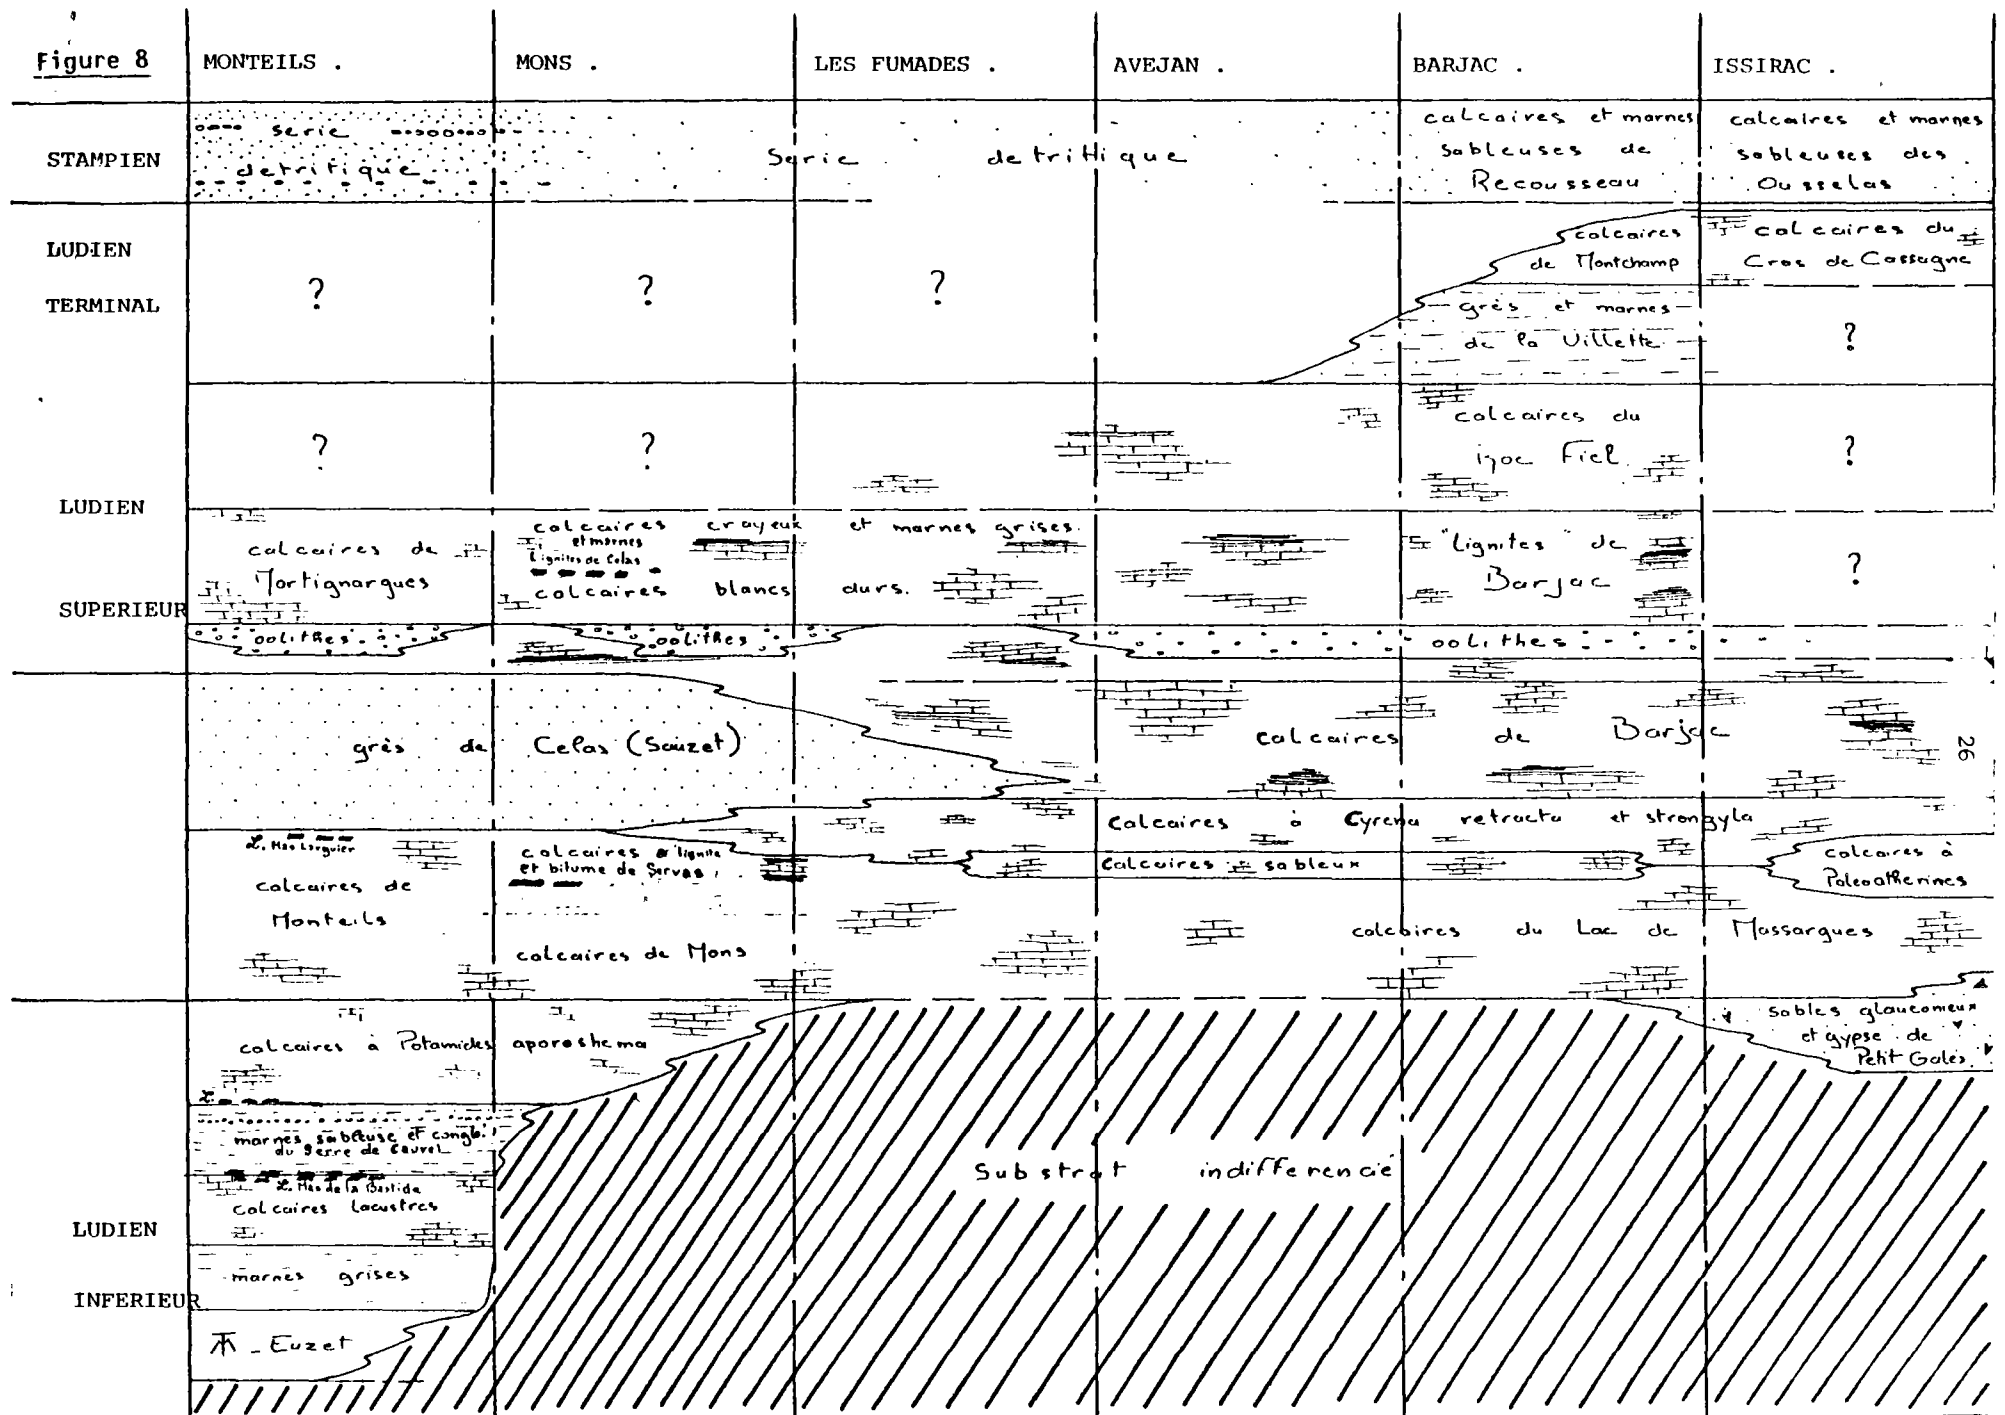 Figure 8
MONTEILS .
MONS .
LES FUMADES .
AVEJAN .
BARJAC .
ISSIRAC .
STAMPIEN
serie
detritique
serie detritique
calcaires et marnes
sableuses de
Recousseau
calcaires et marnes
sableuses des
Ousselas
LUDIEN
TERMINAL
?
?
?
calcaires
de Montchamp
calcaires du
Cros de Cassagne
grès et marnes
de la Villette
?
LUDIEN
SUPERIEUR
?
?
calcaires du
Fiel
?
calcaires de
Mortignargues
calcaires crayeux et marnes grises.
et marnes
Lignites de Celas
calcaires blancs durs.
"Lignites" de
Barjac
?
oolithes
oolithes
oolithes
grès de Celas (Sauzet)
calcaires de Barjac
26
Calcaires à Cyrena retracta et strongyla
L. Mas Larguier
calcaires de
Monteils
calcaires à lignite
et bitume de Servas
Calcaires sableux
calcaires à
Paleoatherines
calcaires de Mons
calcaires du Lac de Massargues
calcaires à Potamides aporoshema
sables glauconieux
et gypse de
Petit Galès
L.
marnes sableuse et conglo.
du Serre de Cauvel
L. Mas de la Bastide
calcaires lacustres
Substrat indifferencié
LUDIEN
INFERIEUR
marnes grises
Euzet